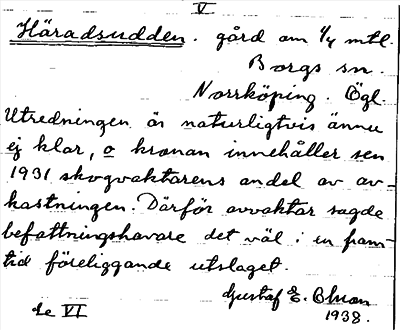 V
Häradsudden. gård om 1/4 mtl.
Borgs sn.
Norrköping. Ögl.
Utredningen är naturligtvis ännu
ej klar, o kronan innehåller sen
1931 skogvaktarens andel av av-
kastningen. Därför avvaktar sagde
befattningshavare det väl i en fram-
tid föreliggande utslaget.
Gustaf E. Olsson
1938.
de VI